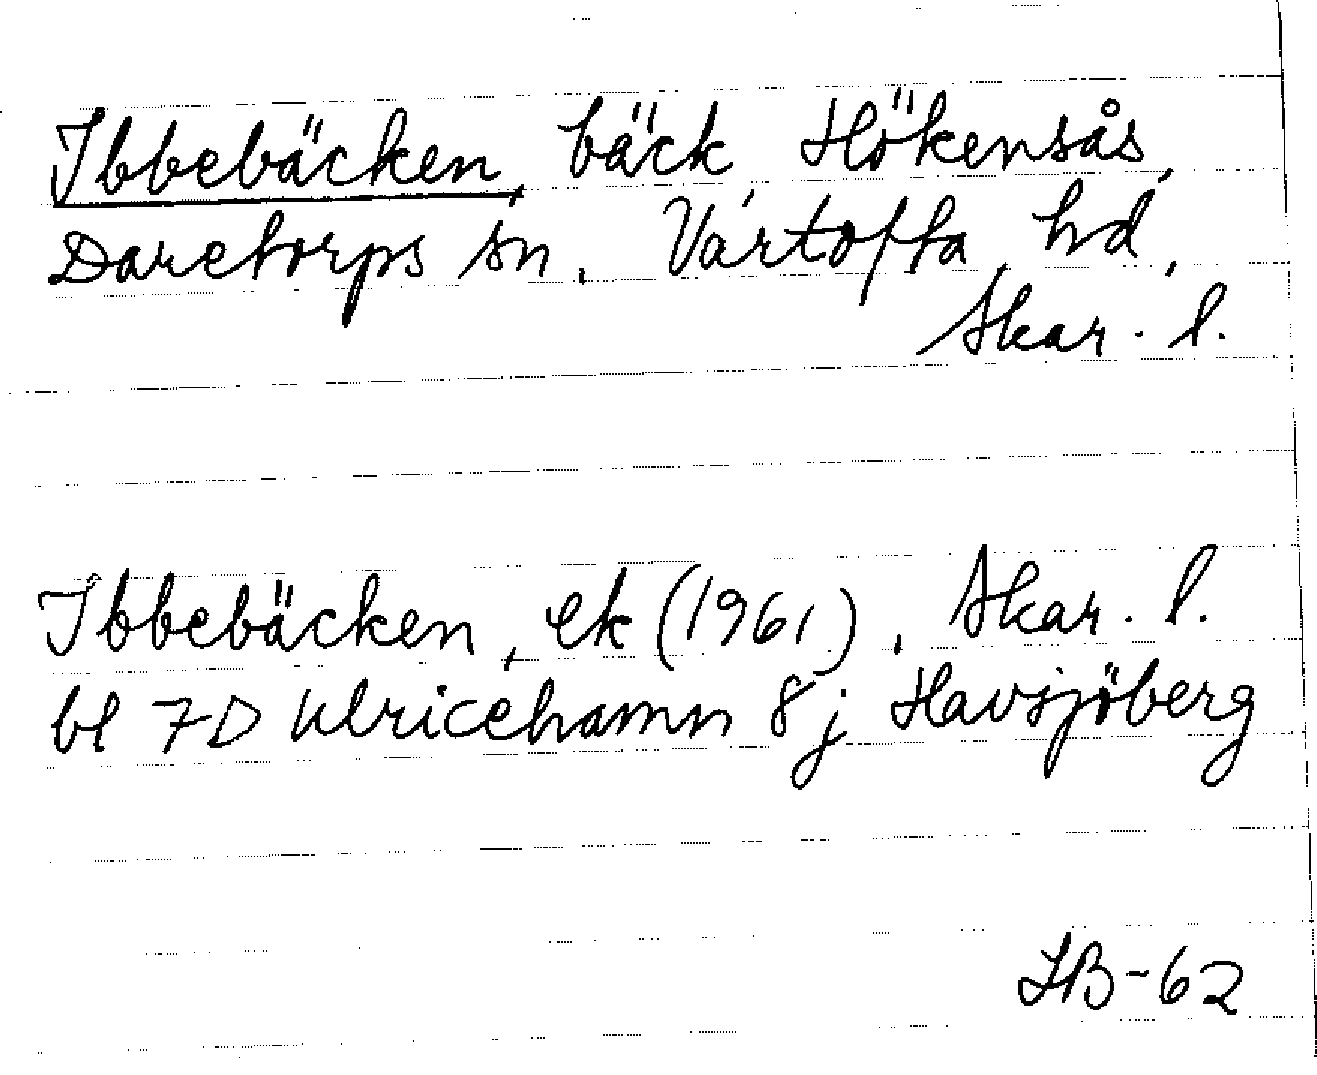 Ibbebäcken, bäck Hökensås,
Daretorps sn, Vartofta hd,
Skar. l.
Ibbebäcken, ek (1961), Skar. l.
bl 7D Ulricehamn 8j Havsjöberg
IB-62